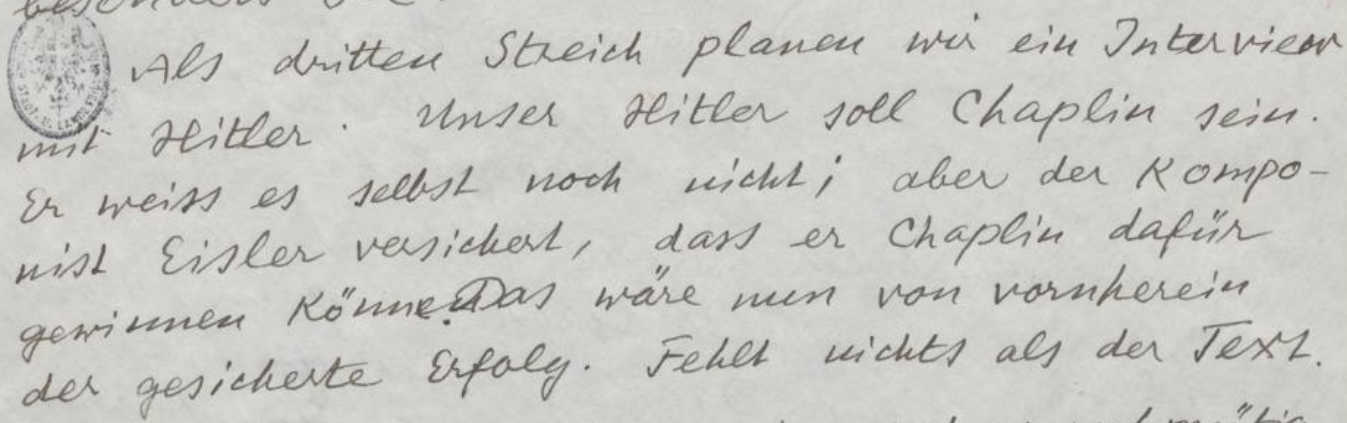 besonders
Als dritten Streich planen wir ein Interview
mit Hitler. Unser Hitler soll Chaplin sein.
Er weiss es selbst noch nicht; aber der Kompo-
nist Eisler versichert, dass er Chaplin dafür
gewinnen könne. Das wäre nun von vornherein
der gesicherte Erfolg. Fehlt nichts als der Text.